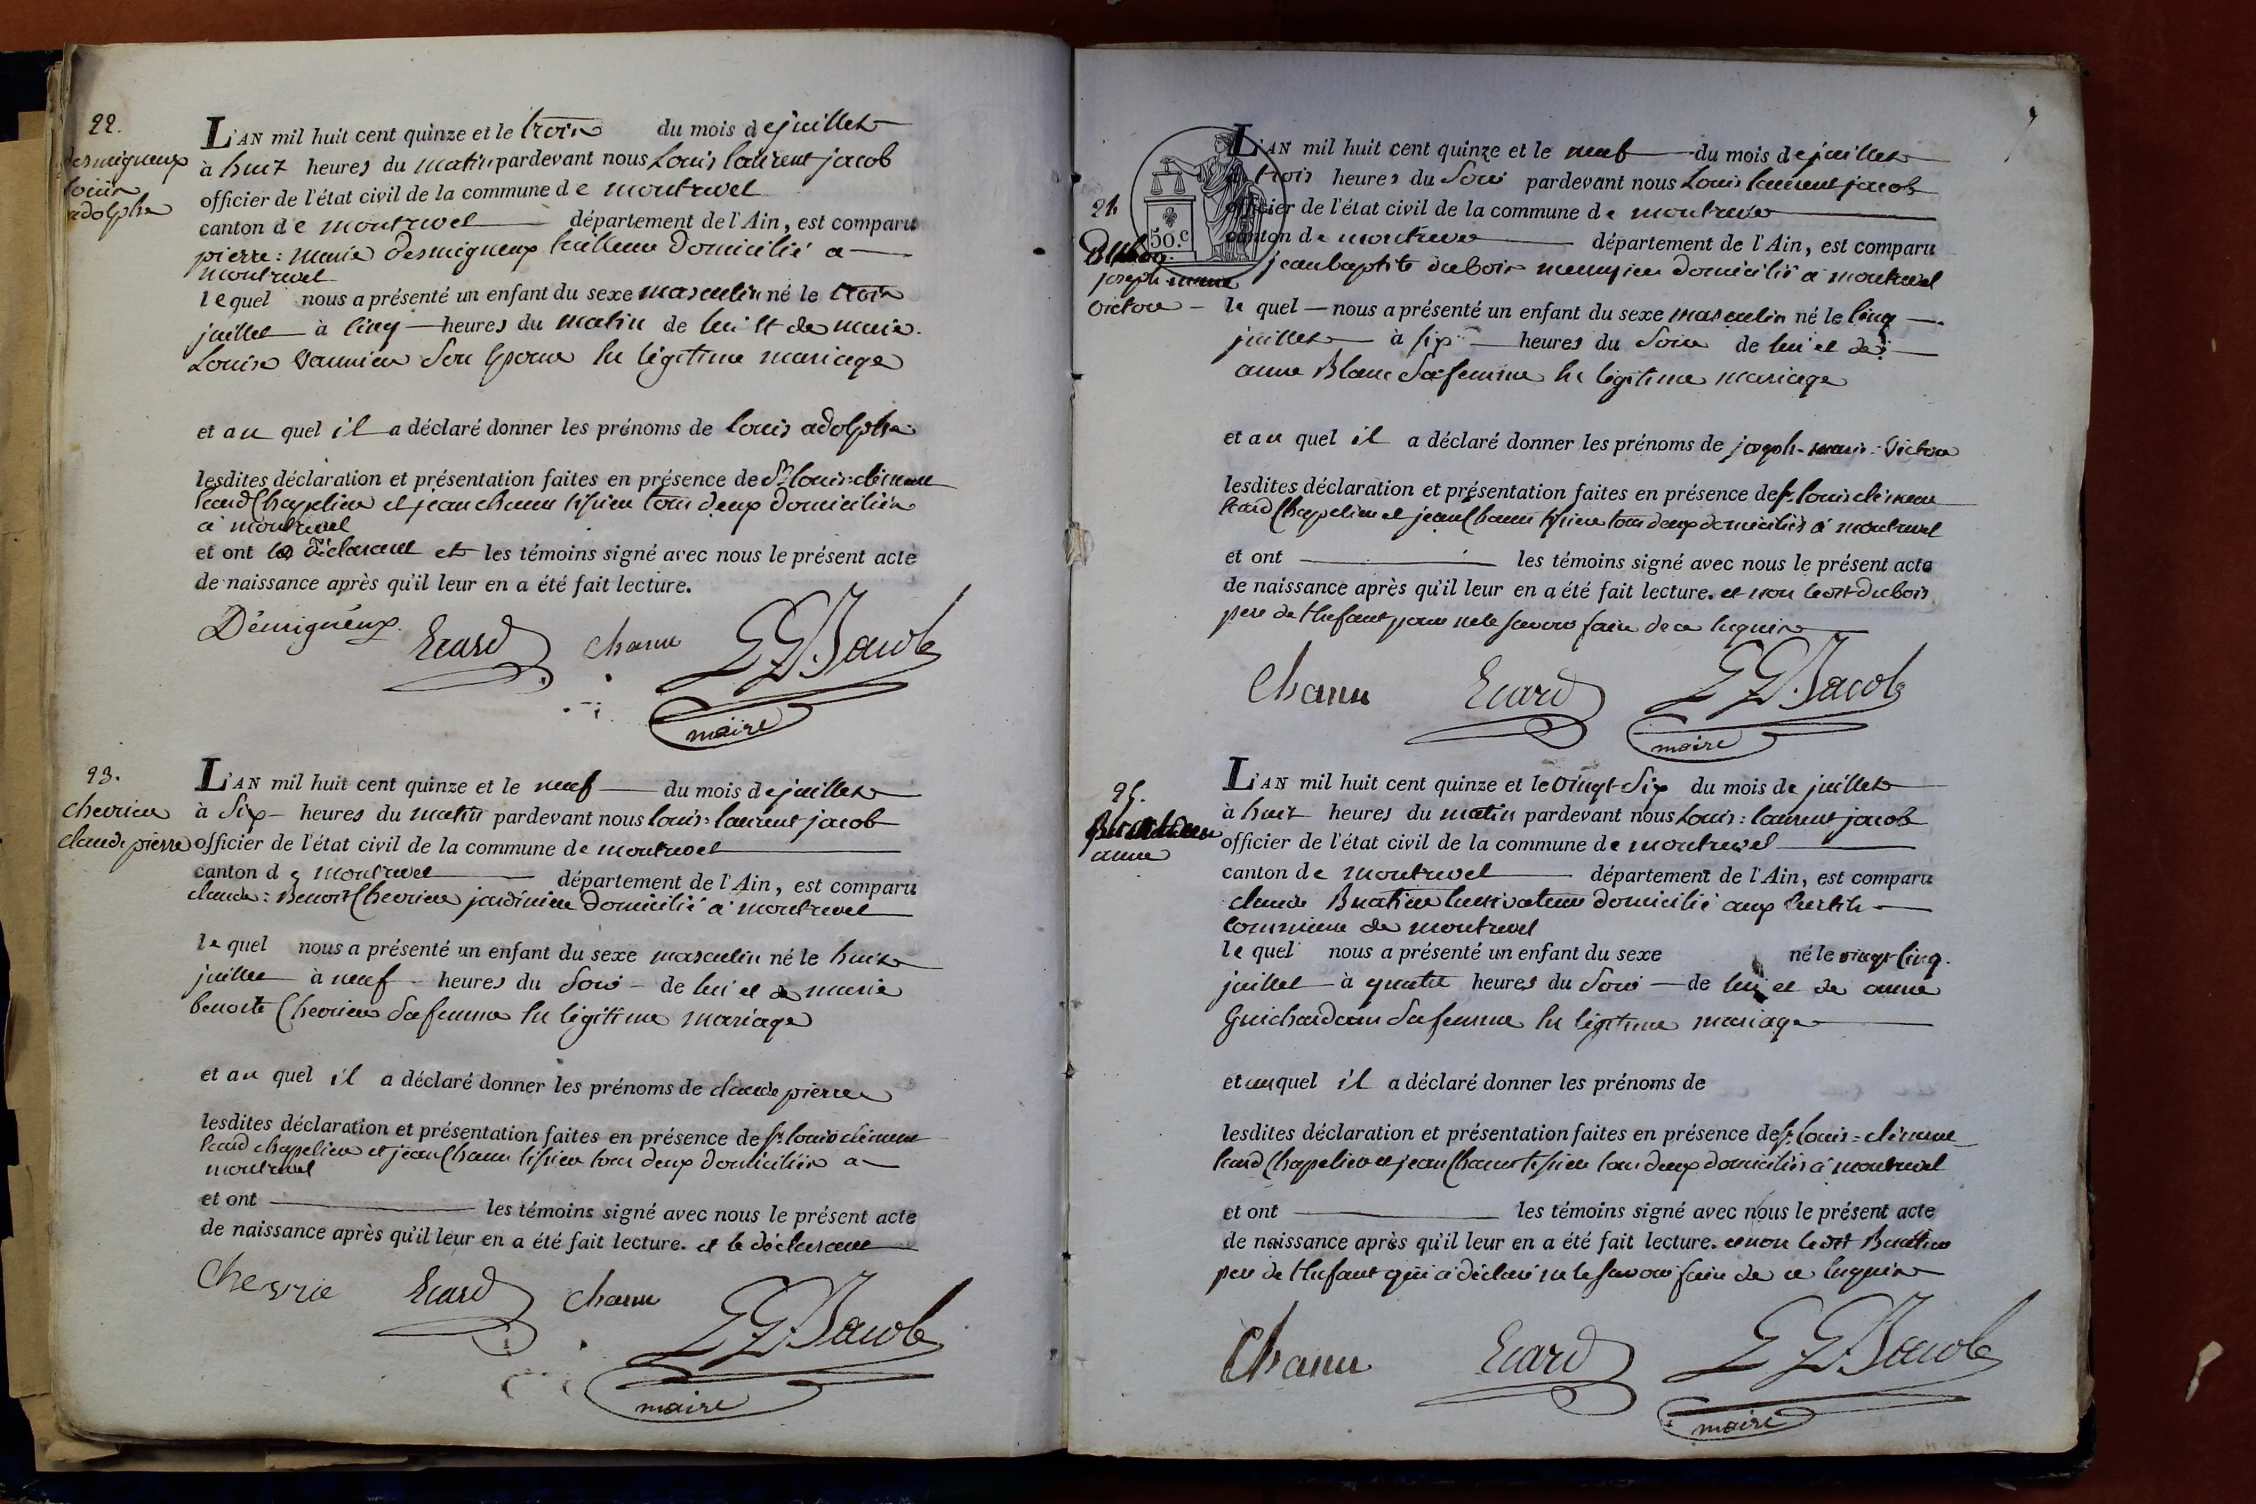 22.
desmigneux
louis
adolphe
L'AN mil huit cent quinze et le trois du mois de juillet
à huit heures du matin pardevant nous Louis laurent jacob
officier de l'état civil de la commune de montrevel
canton de montrevel département de l'Ain, est comparu
pierre: marie desmigneux tailleur domicilié a
montrevel
lequel nous a présenté un enfant du sexe masculin né le trois
juillet à cinq heures du matin de lui et de marie
Louise vannier son Epouse en légitime mariage
et au quel il a déclaré donner les prénoms de louis adolphe
lesdites déclaration et présentation faites en présence de Sr louis clément
Ecard Chapelier et jean chanu tissier tous deux domiciliés
à montrevel
et ont le déclarant et les témoins signé avec nous le présent acte
de naissance après qu'il leur en a été fait lecture.
Démigneux Ecard Chanu L L Jacob
maire
23.
chevrier
claude pierre
L'AN mil huit cent quinze et le neuf du mois de juillet
à Six heures du matin pardevant nous louis: laurent jacob
officier de l'état civil de la commune de montrevel
canton de montrevel département de l'Ain, est comparu
claude: Benoit Chevrier jardinier domicilié à montrevel
le quel nous a présenté un enfant du sexe masculin né le huit
juillet à neuf heures du Soir de lui et de marie
benoite Chevrier Sa femme en légitime mariage
et au quel il a déclaré donner les prénoms de claude pierre
lesdites déclaration et présentation faites en présence de Sr louis clément
Ecard chapelier et jean Chanu tissier tous deux domiciliés a
montrevel
et ont les témoins signé avec nous le présent acte
de naissance après qu'il leur en a été fait lecture. et le déclarant
Chevrie Ecard Chanu L L Jacob
maire
50.c
24
Dubois
joseph marie
victor
L'AN mil huit cent quinze et le neuf du mois de juillet
à trois heures du Soir pardevant nous Louis laurent jacob
officier de l'état civil de la commune de montrevel
canton de montrevel département de l'Ain, est comparu
jean baptiste dubois menuisier domicilié à montrevel
le quel nous a présenté un enfant du sexe masculin né le cinq
juillet à six heures du Soir de lui et de
anne Blanc Sa femme en légitime mariage
et au quel il a déclaré donner les prénoms de joseph-marie-victor
lesdites déclaration et présentation faites en présence de Sr louis clément
Ecard Chapelier et jean Chanu tissier tous deux domiciliés à montrevel
et ont les témoins signé avec nous le présent acte
de naissance après qu'il leur en a été fait lecture. et non ledit dubois
père de l'enfant pour ne le savoir faire de ce enquis
Chanu Ecard L L Jacob
maire
25.
anne
L'AN mil huit cent quinze et le vingt-six du mois de juillet
à huit heures du matin pardevant nous Louis: laurent jacob
officier de l'état civil de la commune de montrevel
canton de montrevel département de l'Ain, est comparu
claude Buatier cultivateur domicilié aux
commune de montrevel
le quel nous a présenté un enfant du sexe né le vingt cinq
juillet à quatre heures du Soir de lui et de anne
Guichardan Sa femme en légitime mariage
et au quel il a déclaré donner les prénoms de
lesdites déclaration et présentation faites en présence de Sr louis-clément
Ecard Chapelier et jean Chanu tissier tous deux domiciliés à montrevel
et ont les témoins signé avec nous le présent acte
de naissance après qu'il leur en a été fait lecture. et non ledit Buatier
père de l'enfant qui a déclaré ne le savoir faire de ce enquis
Chanu Ecard L L Jacob
maire